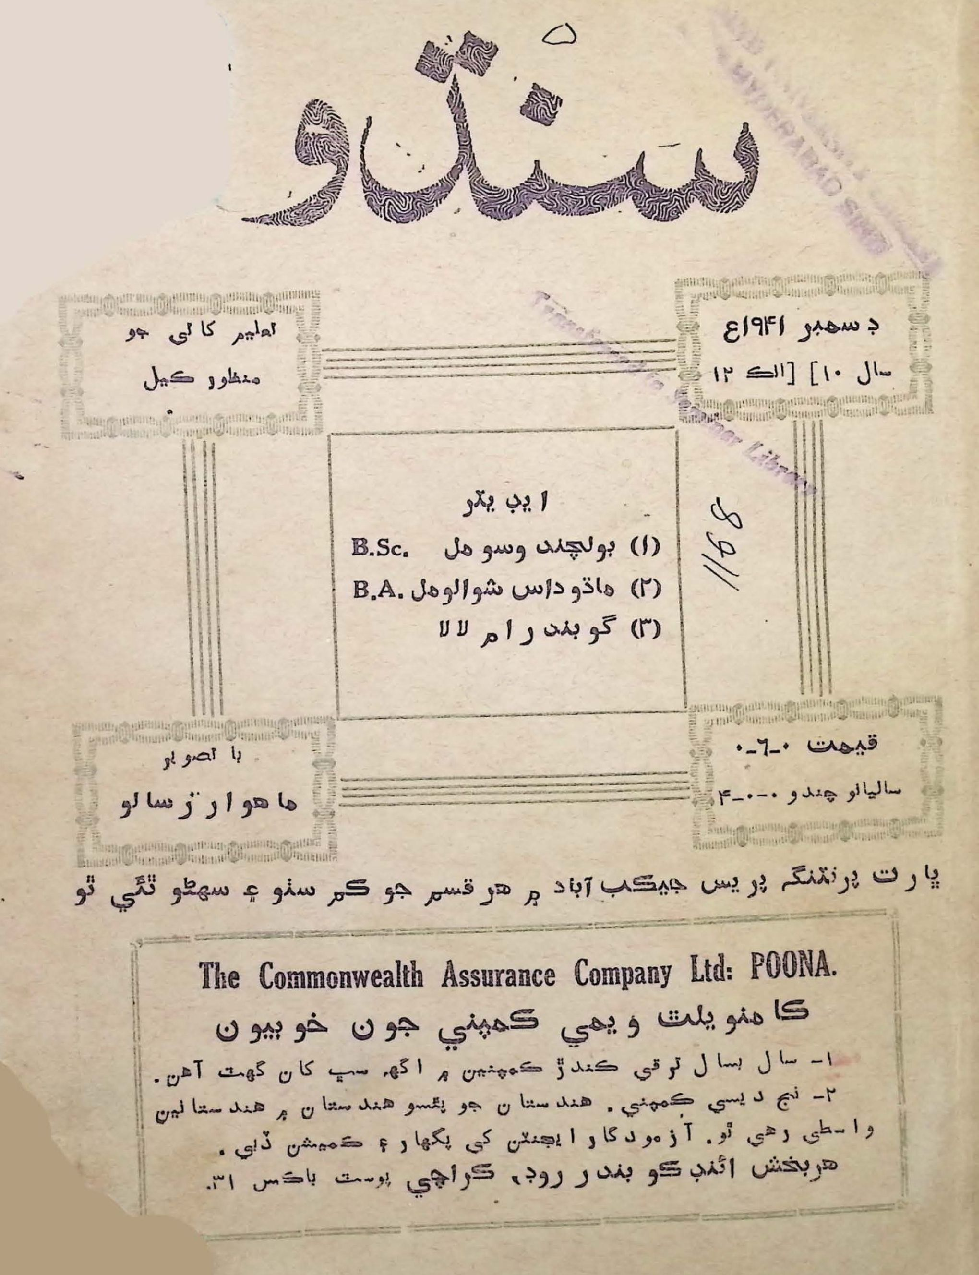 سنڌو
ڊسمبر ۱۹۴۱ع
سال ۱۰] [انڪ ۱۲
تعليم کاتي جو
منظور ڪيل
ايڊيٽر
(۱) ٻولچند وسومل B.Sc.
(۲) ماڌوداس شوالومل B.A.
(۳) گوبندرام لالا
1168
قيمت ۰-٦-۰
ساليانو چندو ۰-۰-۴
با تصوير
ماهوار رسالو
ڀارت پرنٽنگ پريس جيڪب آباد ۾ هر قسم جو ڪم سٺو ۽ سهڻو ٿئي ٿو
The Commonwealth Assurance Company Ltd: POONA.
ڪامنويلٿ ويمي ڪمپني جون خوبيون
۱- سال بسال ترقي ڪندڙ ڪمپنين ۾ اگهہ سڀ کان گهٽ آهن.
۲- نج ديسي ڪمپني. هندستان جو پئسو هندستان ۾ هندستانين
واسطي رهي ٿو. آزمودگار ايجنٽن کي پگهار ۽ ڪميشن ڏبي.
هربخش ائنڊ ڪو بندر روڊ، ڪراچي پوسٽ باڪس ۳۱.
Transferred to Seminar Library
HYDERABAD SIND